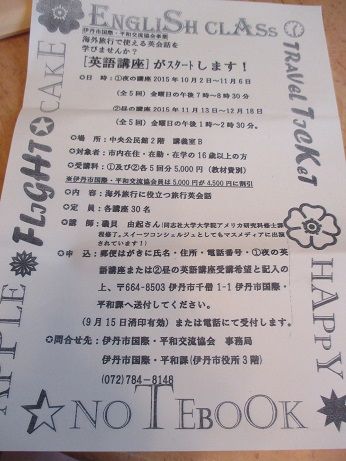 ENGLISH CLASS
伊丹市国際・平和交流協会事業
海外旅行で使える英会話を
学びませんか?
[英語講座]がスタートします!
◎日 時:①夜の講座 2015年10月2日~11月6日
(全5回) 金曜日の午後7時~8時30分
②昼の講座 2015年11月13日~12月18日
(全5回) 金曜日の午後1時~2時30分。
◎場 所:中央公民館2階 講義室B
◎対象者:市内在住・在勤・在学の16歳以上の方
◎受講料:①及び②各5回分 5,000円(教材費別)
※伊丹市国際・平和交流協会員は5,000円が4,500円に割引
◎内 容:海外旅行に役立つ旅行英会話
◎定 員:各講座30名
◎講 師:磯貝 由起さん(同志社大学大学院アメリカ研究科修士課
程修了。スイーツコンシェルジュとしてもマスメディアに出演
されています!)
◎申 込:郵便はがきに氏名・住所・電話番号・①夜の英
語講座または②昼の英語講座受講希望と記入の
上、〒664-8503 伊丹市千僧1-1 伊丹市国際・
平和課へ送付してください。
(9月15日消印有効) または電話にて受付します。
◎問合せ先:伊丹市国際・平和交流協会 事務局
伊丹市国際・平和課(伊丹市役所3階)
(072)784-8148
TRAVEL TICKET
HAPPY
CAKE
FLIGHT
APPLE
NOTEBOOK